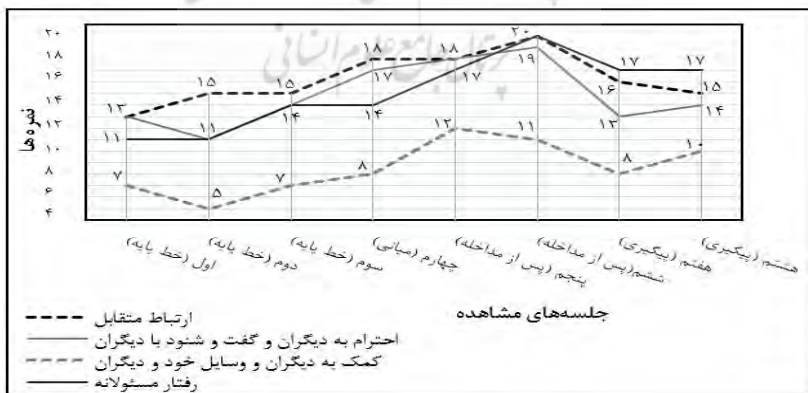 پرتال جامع علوم انسانی
۲۰
۱۸
۱۶
۱۴
۱۲
۱۰
۸
۶
۴
نمره‌ها
۱۳ ۱۵ ۱۵ ۱۸ ۱۸ ۲۰ ۱۶ ۱۵
۱۱ ۱۷ ۱۹ ۱۳ ۱۴
۱۱ ۱۴ ۱۴ ۱۷ ۱۷ ۱۷
۷ ۵ ۷ ۸ ۱۲ ۱۱ ۸ ۱۰
اول (خط پایه)
دوم (خط پایه)
سوم (خط پایه)
چهارم (میانی)
پنجم (پس از مداخله)
ششم (پس از مداخله)
هفتم (پیگیری)
هشتم (پیگیری)
جلسه‌های مشاهده
ارتباط متقابل
احترام به دیگران و گفت و شنود با دیگران
کمک به دیگران و وسایل خود و دیگران
رفتار مسئولانه